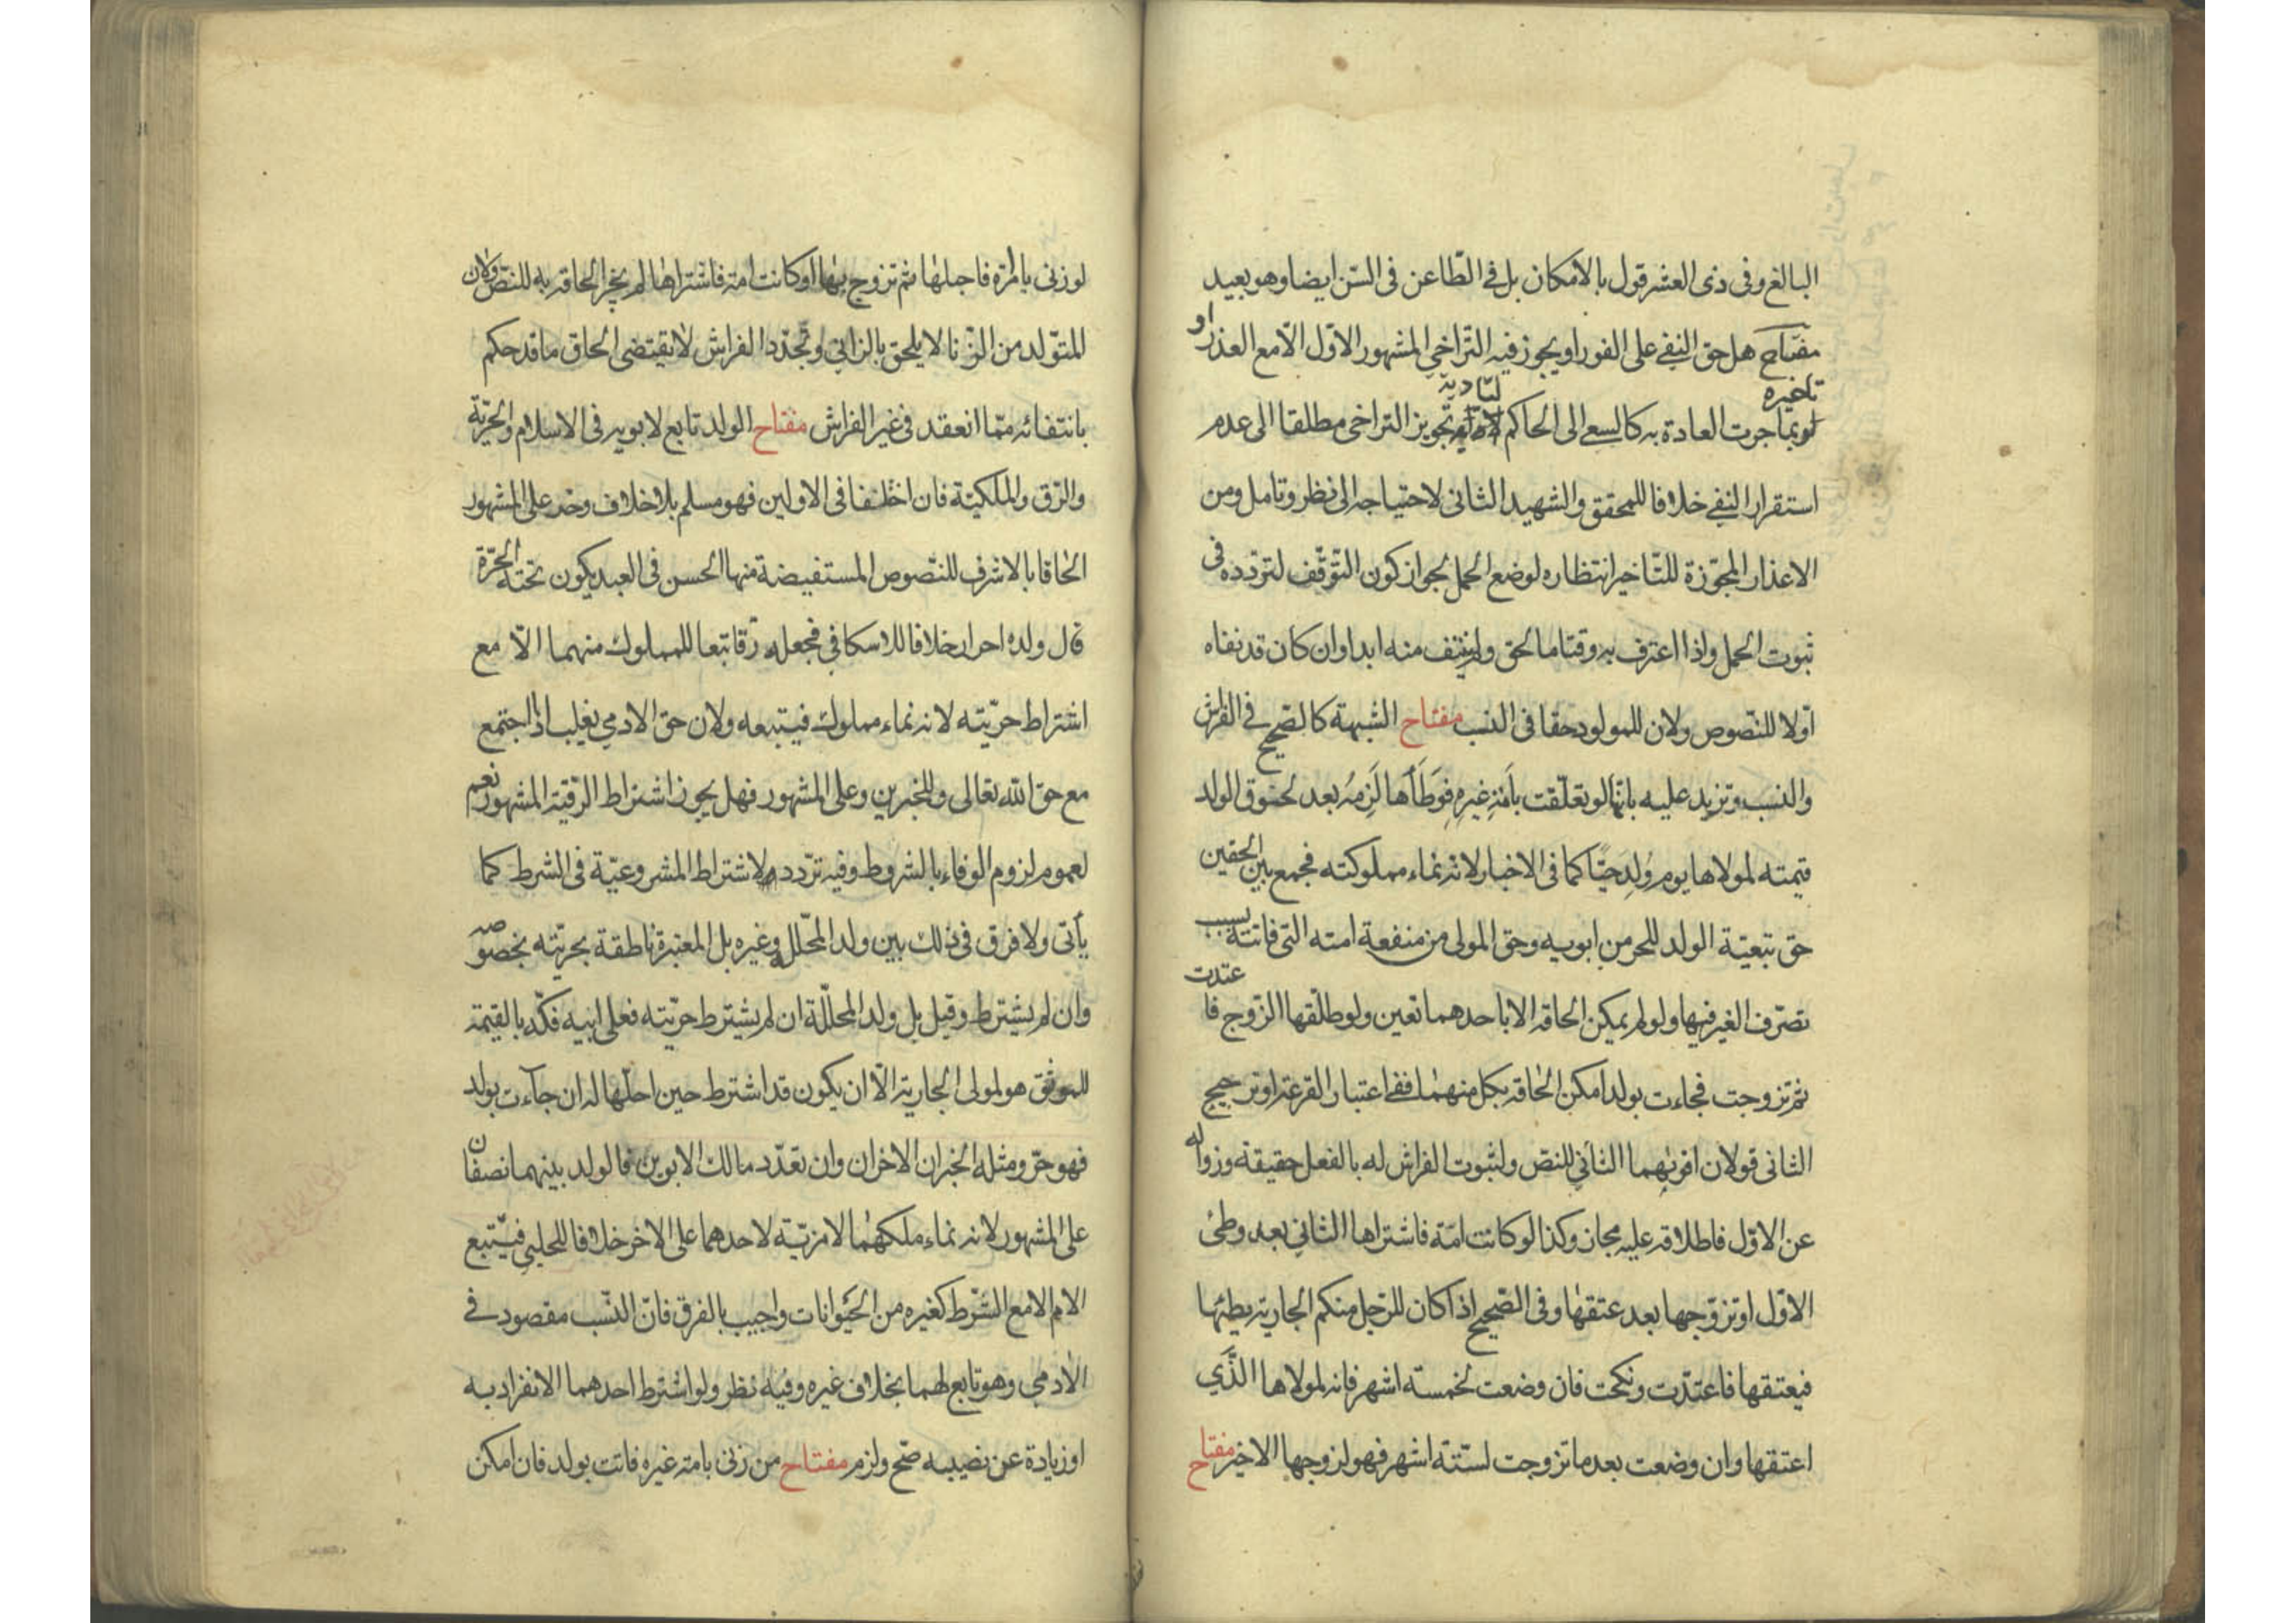 البالغ وفى ذى العشر قول بالامكان بل فى الطّاعن فى السّن ايضا وهو بعيد
مفتاح هل حق النفى على الفور او يجوز فيه التّراخى المشهور الاوّل الّا مع العذر او
تاخيره
بما جرت العادة به كالسعى الى الحاكم لتاديه تجويز التراخى مطلقا الى عدم
استقرار النفى خلافا للمحقق والشهيد الثانى لاحتياجه الى نظر وتامل ومن
الاعذار المجوّزة للتّاخير انتظاره لوضع الحمل لجواز كون التّوقّف لتردّده فى
ثبوت الحمل واذا اعترف به وقتا ما الحق ولم ينتف منه ابدا وان كان قد نفاه
اوّلا للنّصوص ولان للمولود حقا فى النسب مفتاح الشبهة كالصّحيح فى الفراش
والنسب وتزيد عليه بانّها لو تعلّقت بأمَةِ غيرِهِ فوَطَأها لَزِمَهُ بعد لحوق الولد
قيمته لمولاها يوم وُلِدَ حيًّا كما فى الاخبار لانّه نماء مملوكته فجمع بين الحقين
حق تبعيّة الولد للحر من ابويه وحق المولى من منفعة امته التى فاتته بسبب
تصرّف الغير فيها ولو لم يمكن الحاقه الا باحدهما تعين ولو طلّقها الزّوج فاعتدت
ثم تزوجت فجاءت بولد امكن الحاقه بكل منهما ففى اعتبار القرعة او ترجيح
الثانى قولان اقويهما الثانى للنصّ ولثبوت الفراش له بالفعل حقيقة وزواله
عن الاوّل فاطلاقه عليه مجاز وكذا لو كانت امَة فاشتراها الثانى بعد وطئ
الاوّل او تزوّجها بعد عتقها وفى الصّحيح اذا كان للرّجل منكم الجارية يطئها
فيعتقها فاعتدّت ونكحت فان وضعت لخمسة اشهر فانه لمولاها الذَّي
اعتقها وان وضعت بعد ما تزوجت لستّة اشهر فهو لزوجها الاخير مفتاح
لو زنى بامرأة فاحبلها ثم تزوج بها او كانت امة فاشتراها لم يجز الحاقه به للنصّ ولان
المتوّلد من الزّنا لا يلحق بالزانى وتجدّد الفراش لا يقتضى الحاق ما قد حكم
بانتفائه ممّا انعقد فى غير الفراش مفتاح الولد تابع لابويه فى الاسلام والحرّيّة
والرّق والملكيّة فان اختلفا فى الاولين فهو مسلم بلا خلاف وحر على المشهور
الحاقا بالاشرف للنّصوص المستفيضة منها الحسن فى العبد يكون تحته الحرّة
قال ولده احرار خلافا للاسكافى فجعله رقّا تبعا للمملوك منهما الّا مع
اشتراط حرّيّته لانه نماء مملوك فيتبعه ولان حق الادمى يغلب اذا اجتمع
مع حق الله تعالى وللخبرين وعلى المشهور فهل يجوز اشتراط الرّقيّة المشهور نعم
لعموم لزوم الوفاء بالشروط وفيه تردّد لاشتراط المشروعيّة فى الشرط كما
يأتى ولا فرق فى ذلك بين ولد المحلّلة وغيره بل المعتبرة ناطقة بحريّته بخصوصه
وان لم يشترط وقيل بل ولد المحلّلة ان لم يشترط حرّيّته فعلى ابيه فكّه بالقيمة
للموثق هو لمولى الجارية الّا ان يكون قد اشترط حين احلّها له ان جآءت بولد
فهو حرّ ومثله الخبران الاخران وان تعدّد مالك الابوين فالولد بينهما نصفان
على المشهور لانه نماء ملكهما لا مزيّة لاحدهما على الاخر خلافا للحلبى فيتبع
الام الا مع الشّرط كغيره من الحيوانات واجيب بالفرق فانّ النّسب مقصود فى
الآدمى وهو تابع لهما بخلاف غيره وفيه نظر ولو اشترط احدهما الانفراد به
او زيادة عن نصيبه صّح ولزم مفتاح من زنى بامة غيره فاتت بولد فان امكن